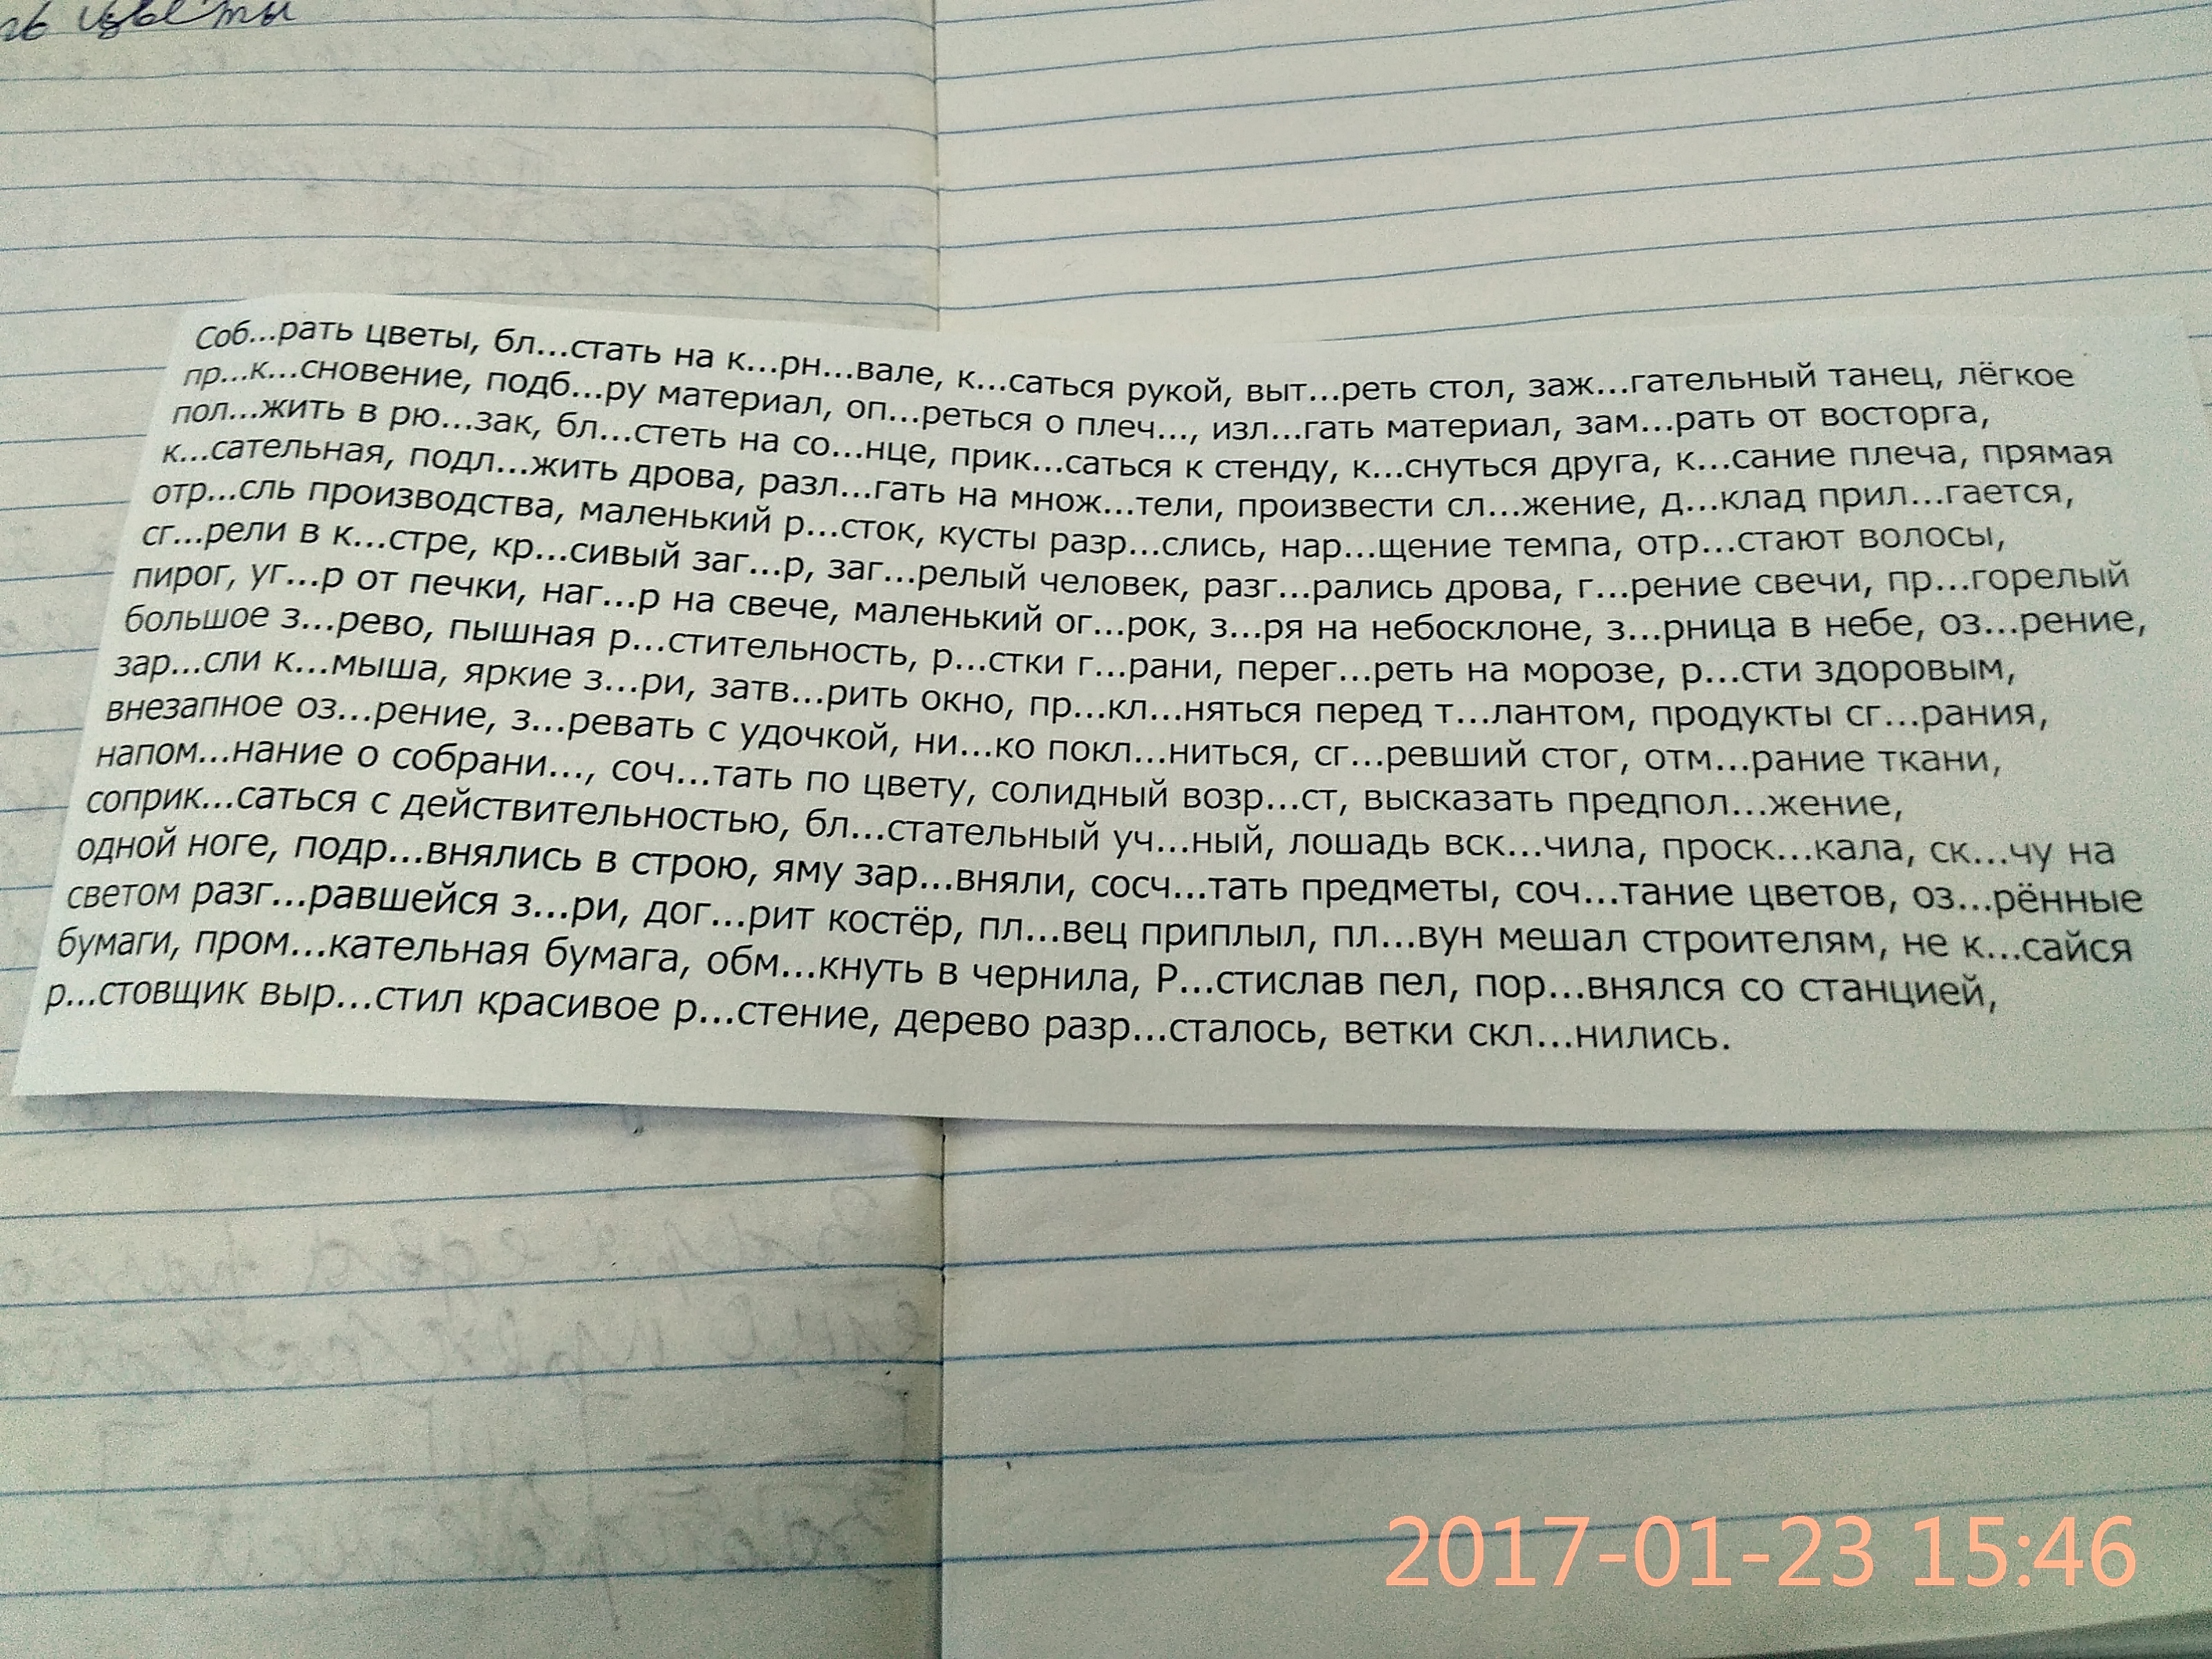 ть цветы
Соб...рать цветы, бл...стать на к...рн...вале, к...саться рукой, выт...реть стол, заж...гательный танец, лёгкое
пр...к...сновение, подб...ру материал, оп...реться о плеч..., изл...гать материал, зам...рать от восторга,
пол...жить в рю...зак, бл...стеть на со...нце, прик...саться к стенду, к...снуться друга, к...сание плеча, прямая
к...сательная, подл...жить дрова, разл...гать на множ...тели, произвести сл...жение, д...клад прил...гается,
отр...сль производства, маленький р...сток, кусты разр...слись, нар...щение темпа, отр...стают волосы,
сг...рели в к...стре, кр...сивый заг...р, заг...релый человек, разг...рались дрова, г...рение свечи, пр...горелый
пирог, уг...р от печки, наг...р на свече, маленький ог...рок, з...ря на небосклоне, з...рница в небе, оз...рение,
большое з...рево, пышная р...стительность, р...стки г...рани, перег...реть на морозе, р...сти здоровым,
зар...сли к...мыша, яркие з...ри, затв...рить окно, пр...кл...няться перед т...лантом, продукты сг...рания,
внезапное оз...рение, з...ревать с удочкой, ни...ко покл...ниться, сг...ревший стог, отм...рание ткани,
напом...нание о собрани..., соч...тать по цвету, солидный возр...ст, высказать предпол...жение,
соприк...саться с действительностью, бл...стательный уч...ный, лошадь вск...чила, проск...кала, ск...чу на
одной ноге, подр...внялись в строю, яму зар...вняли, сосч...тать предметы, соч...тание цветов, оз...рённые
светом разг...равшейся з...ри, дог...рит костёр, пл...вец приплыл, пл...вун мешал строителям, не к...сайся
бумаги, пром...кательная бумага, обм...кнуть в чернила, Р...стислав пел, пор...внялся со станцией,
р...стовщик выр...стил красивое р...стение, дерево разр...сталось, ветки скл...нились.
2017-01-23 15:46